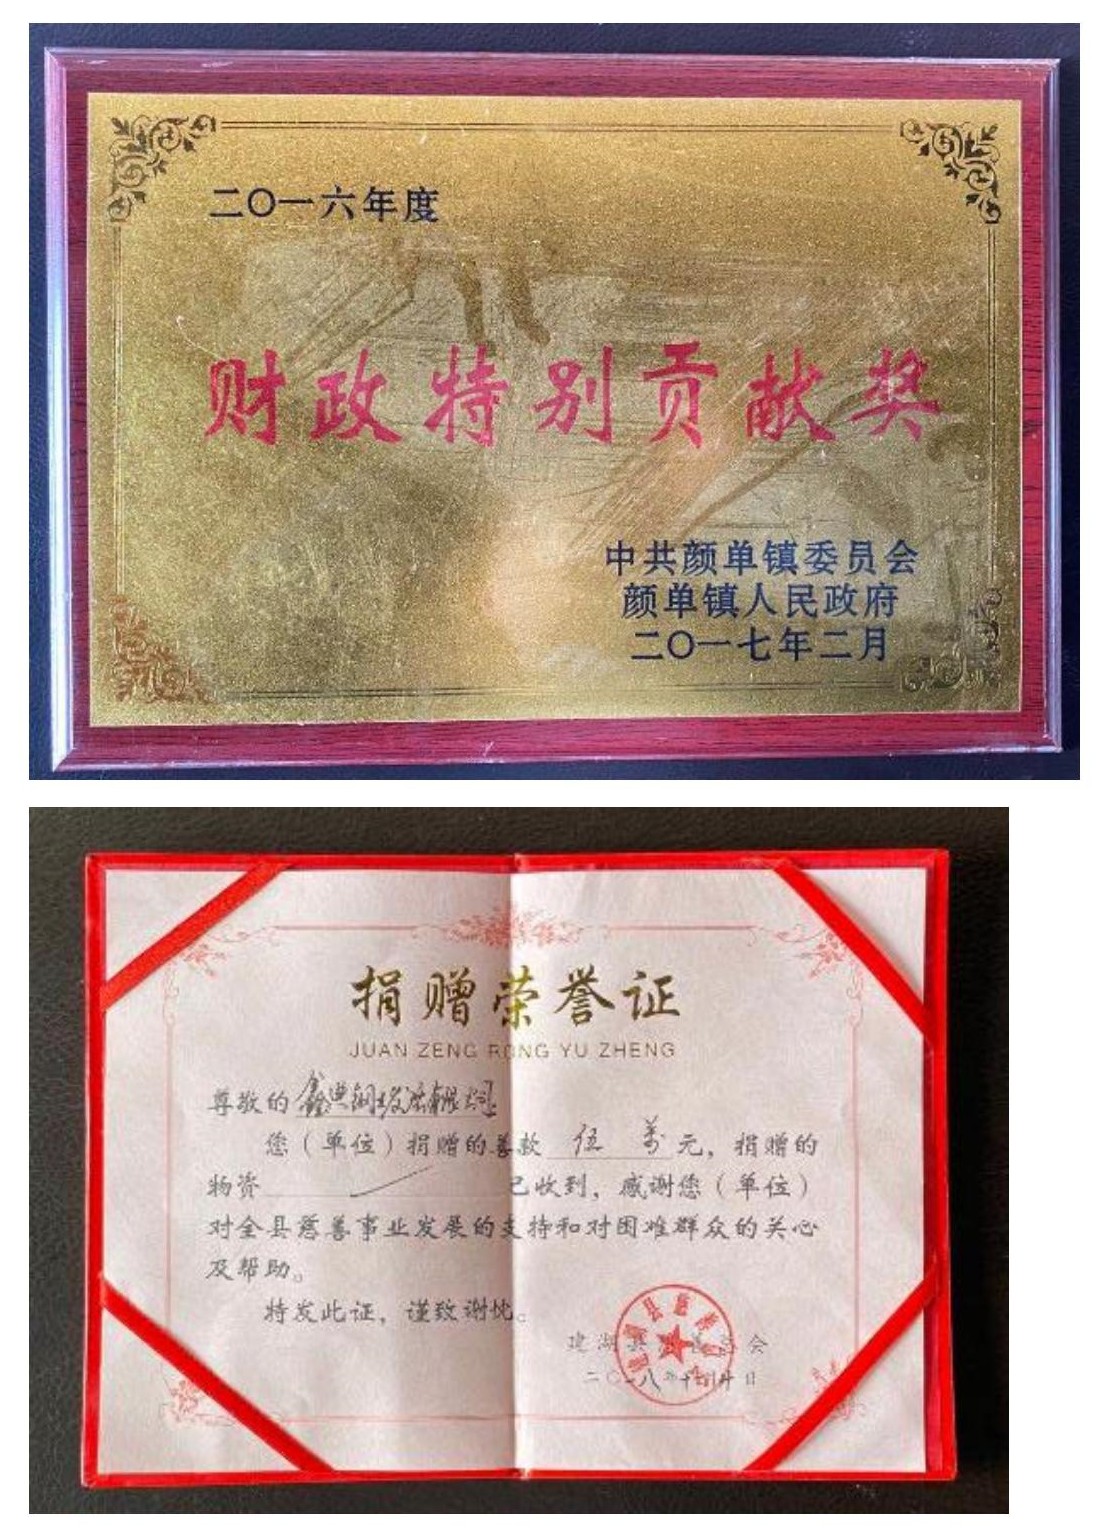 二〇一六年度
财政特别贡献奖
中共颜单镇委员会
颜单镇人民政府
二〇一七年二月
捐赠荣誉证
JUAN ZENG RONG YU ZHENG
尊敬的
您（单位）捐赠的善款 伍 万 元，捐赠的
物资 已收到，感谢您（单位）
对全县慈善事业发展的支持和对困难群众的关心
及帮助。
特发此证，谨致谢忱。
建湖县慈善总会
二〇一八年十 月 日